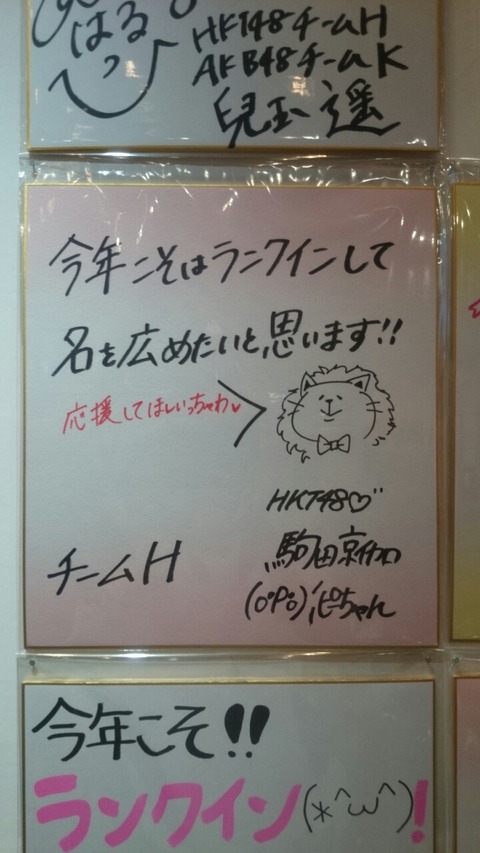 はるっ
HKT48チームH
AKB48チームK
兒玉遥
今年こそはランクインして
名を広めたいと思います!!
応援してほしいっちゃわ♥
HKT48♡
駒田京伽
(o°P°o)ぴちゃん
チームH
今年こそ!!
ランクイン(*^ω^)!